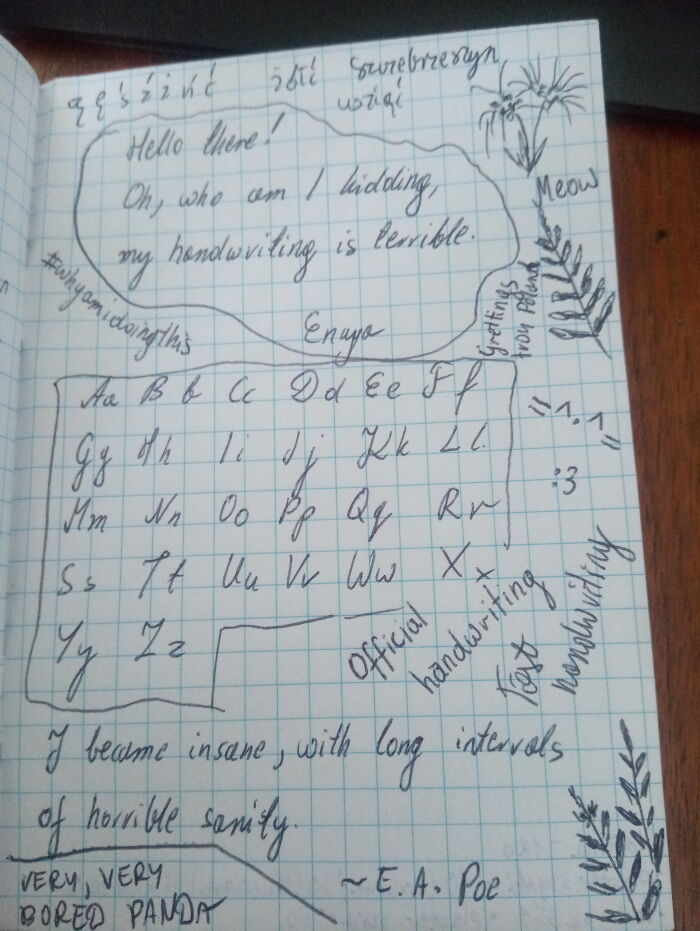 ą ę ś ź ż ń ć żółć Szczebrzeszyn
wziąć
Hello there!
Oh, who am I kidding,
my handwriting is terrible.
#whyamidoingthis
Meow
Grettings
from Poland
Aa Bb Cc Dd Ee Ff
Gg Hh Ii Jj Kk Ll
Mm Nn Oo Pp Qq Rr
Ss Tt Uu Vv Ww Xx
Yy Zz
„^.^”
:3
Official
handwriting
Fast
handwriting
I became insane, with long intervals
of horrible sanity.
~ E. A. Poe
VERY, VERY
BORED PANDA